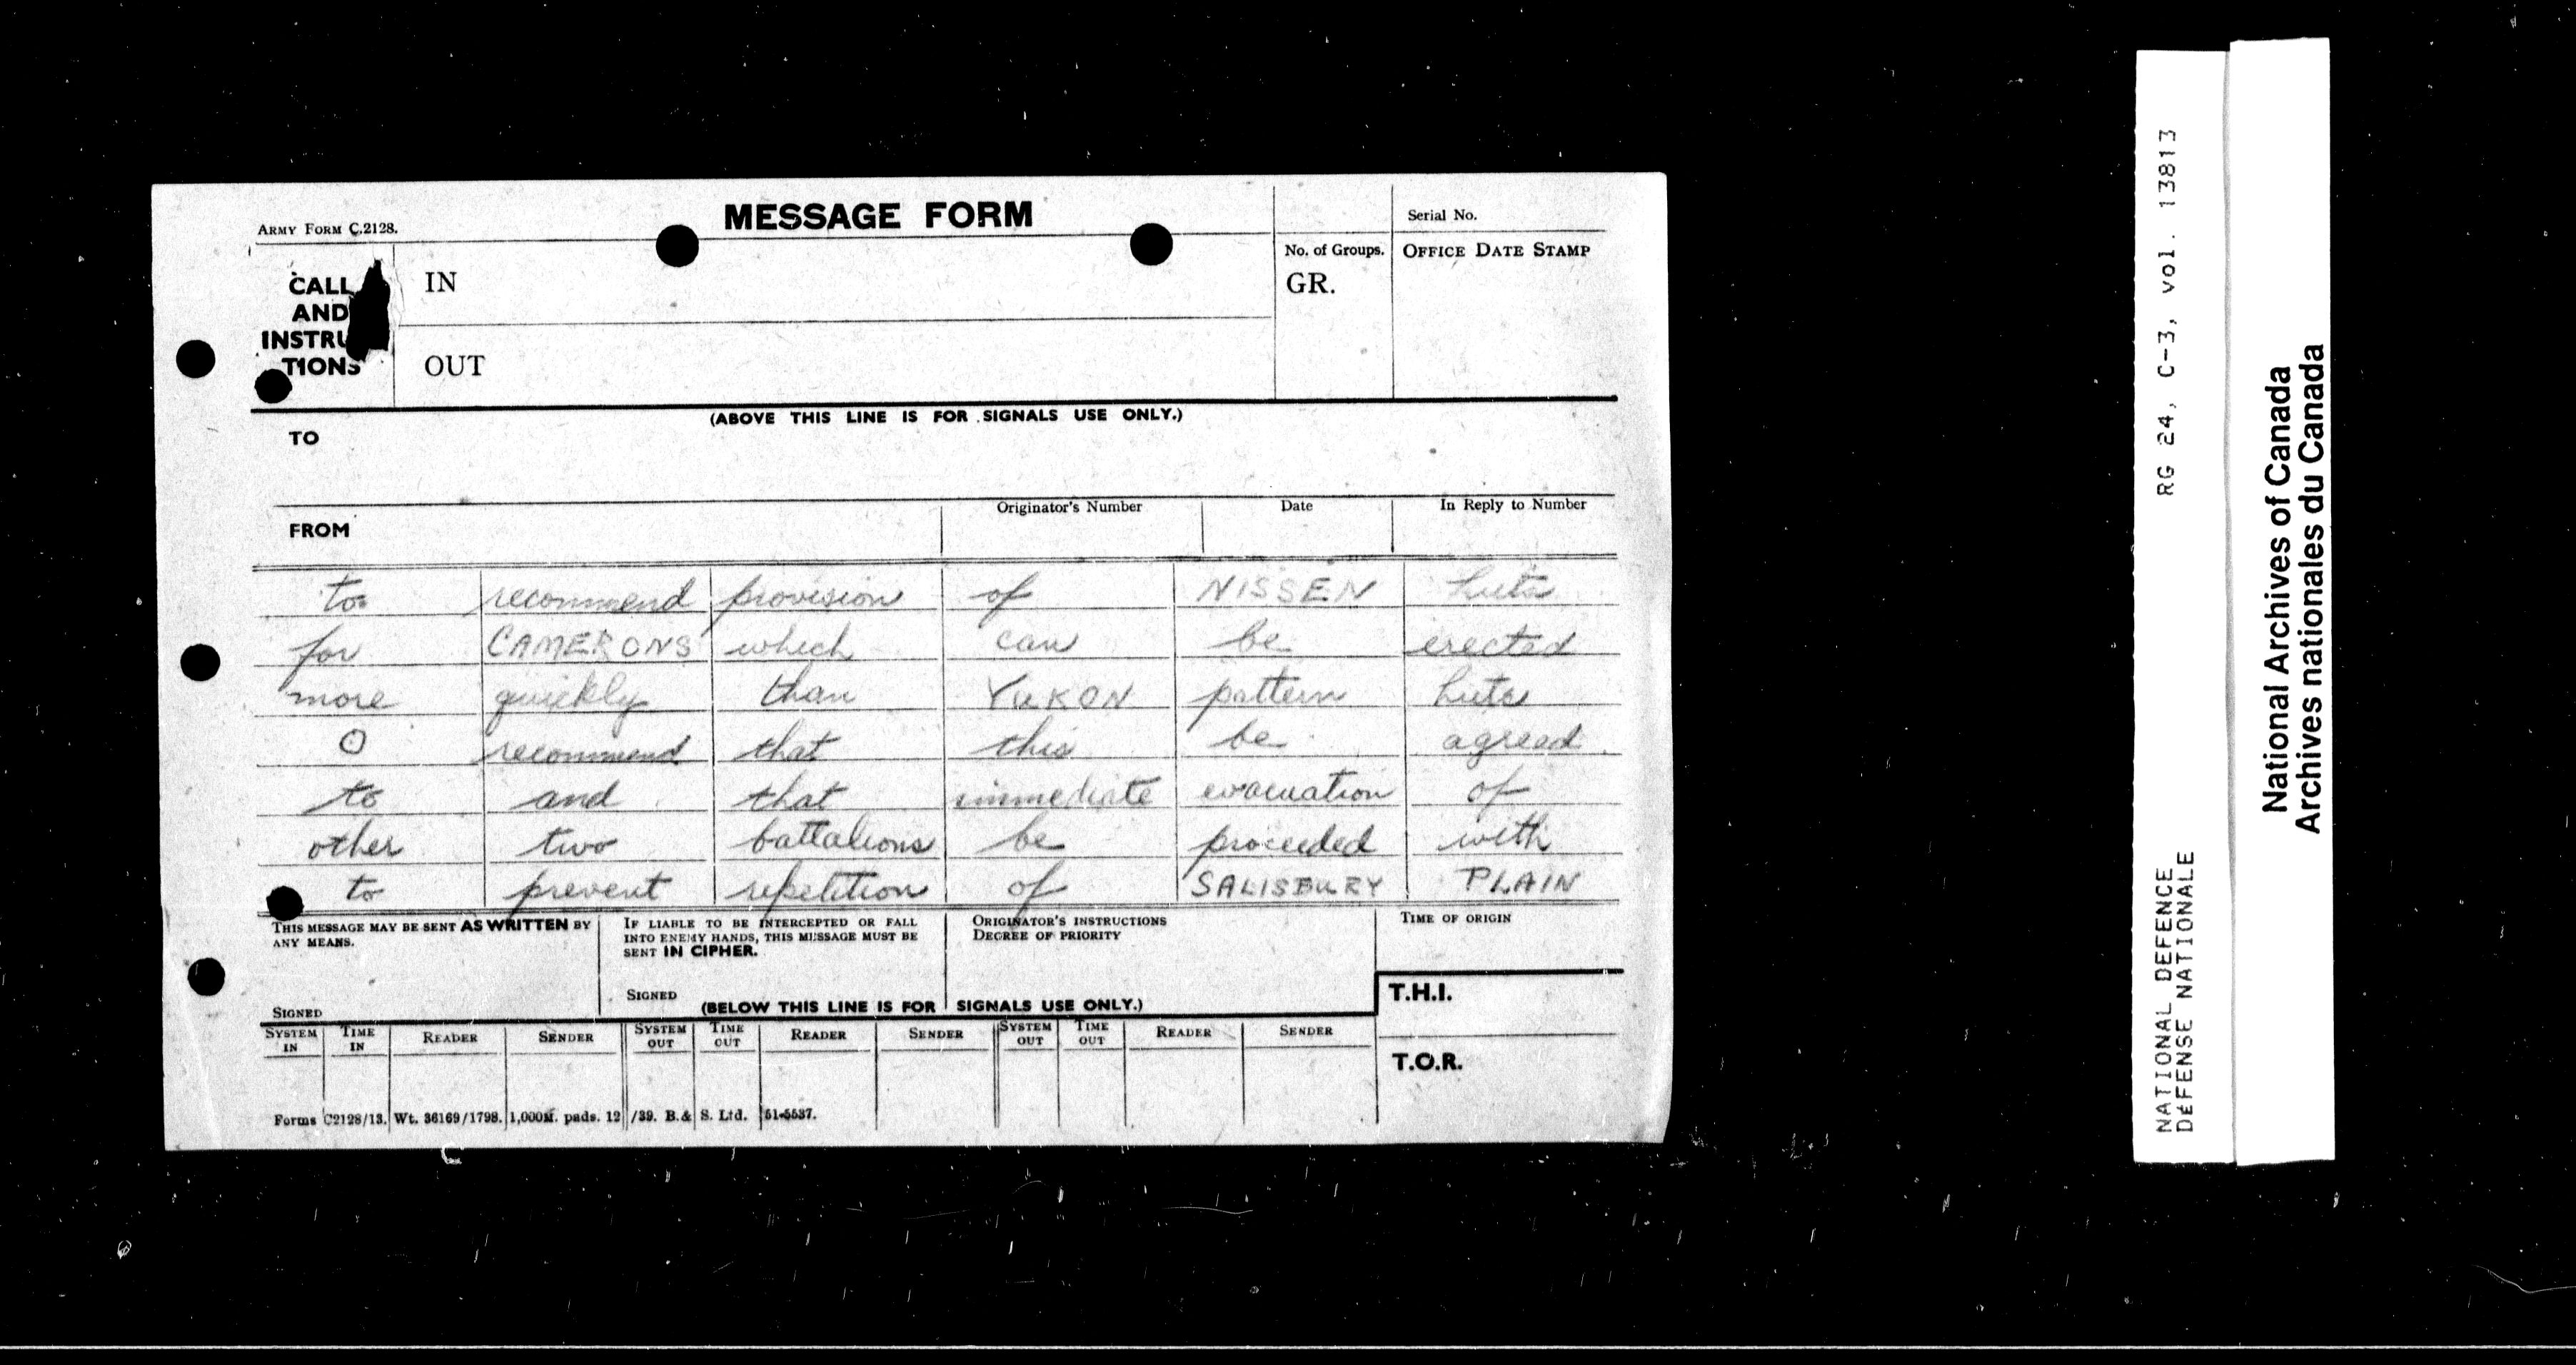 MESSAGE FORM
ARMY FORM C.2128.
Serial No.
CALL AND INSTRU TIONS
IN
No. of Groups.
GR.
OFFICE DATE STAMP
OUT
(ABOVE THIS LINE IS FOR SIGNALS USE ONLY.)
TO
FROM
Originator's Number
Date
In Reply to Number
to recommend provision of NISSEN huts
for CAMERONS which can be erected
more quickly than YUKON pattern huts
O recommend that this be agreed
to and that immediate evacuation of
other two battalions be proceeded with
to prevent repetition of SALISBURY PLAIN
THIS MESSAGE MAY BE SENT AS WRITTEN BY
ANY MEANS.
SIGNED
IF LIABLE TO BE INTERCEPTED OR FALL
INTO ENEMY HANDS, THIS MESSAGE MUST BE
SENT IN CIPHER.
SIGNED
ORIGINATOR'S INSTRUCTIONS
DEGREE OF PRIORITY
TIME OF ORIGIN
(BELOW THIS LINE IS FOR SIGNALS USE ONLY.)
T.H.I.
SYSTEM IN TIME IN READER SENDER SYSTEM OUT TIME OUT READER SENDER SYSTEM OUT TIME OUT READER SENDER
T.O.R.
Forms C2128/13. Wt. 36169/1798. 1,000M. pads. 12/39. B.& S. Ltd. 51-5537.
RG 24, C-3, vol. 13813
NATIONAL DEFENCE
DéFENSE NATIONALE
National Archives of Canada
Archives nationales du Canada